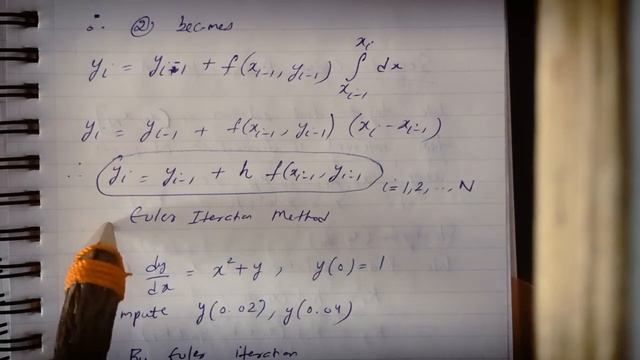 ∴ ② becomes
y_i = y_{i-1} + f(x_{i-1}, y_{i-1}) ∫_{x_{i-1}}^{x_i} dx
y_i = y_{i-1} + f(x_{i-1}, y_{i-1}) (x_i - x_{i-1})
∴ y_i = y_{i-1} + h f(x_{i-1}, y_{i-1} i=1,2,...,N
Euler Iteration Method
dy/dx = x² + y , y(0) = 1
mpute y(0.02), y(0.04)
By Euler iteration